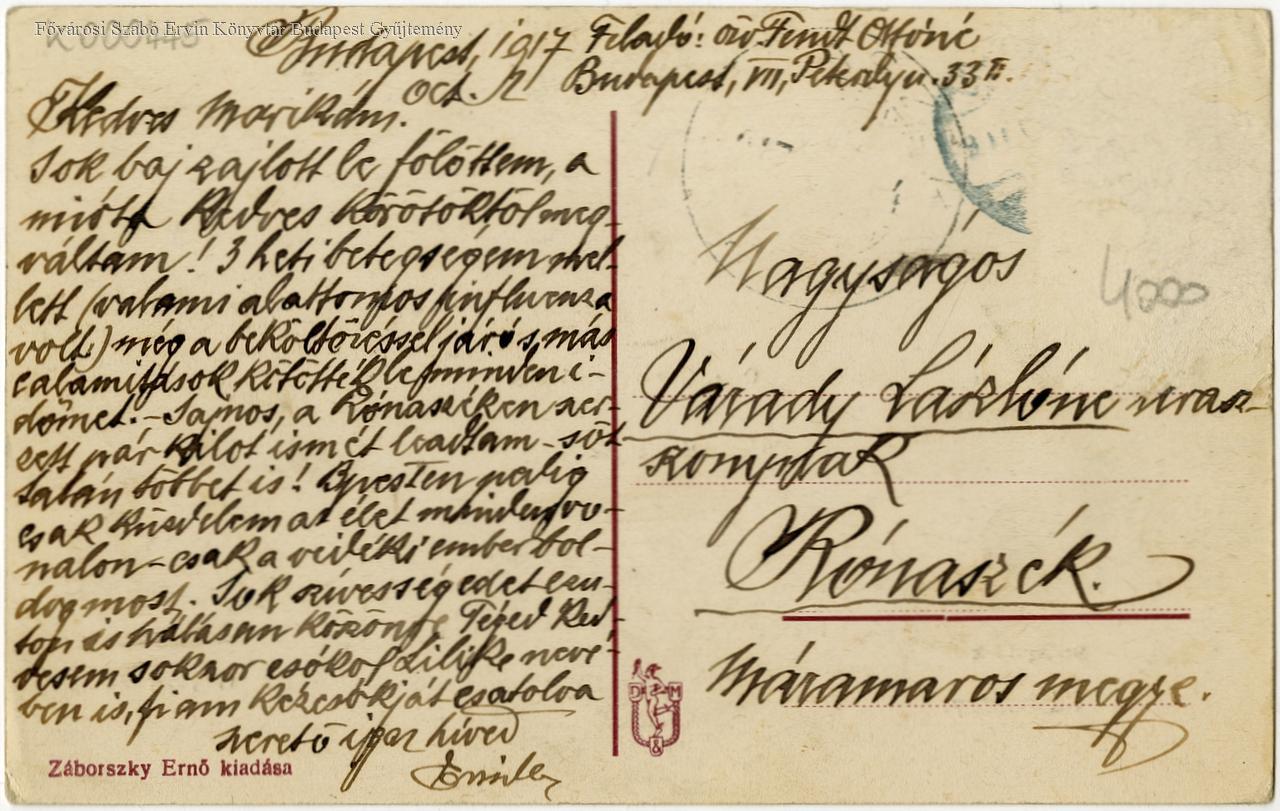 Fővárosi Szabó Ervin Könyvtár Budapest Gyűjtemény
Budapest, 1917
Oct. 12
Feladó: özv. Fendt Ottóné
Budapest, VII, Péterdy u. 33 II.
Kedves Marikám.
Sok baj zajlott le fölöttem, a
mióta kedves körötöktől meg-
váltam! 3 heti betegségem mel-
lett (valami alattomos influenza
volt) még a beköltözéssel járó s más
calamitások kötötték le minden i-
dőmet. – Sajnos, a Rónaszéken szer-
zett pár kilot ismét leadtam – sőt
talán többet is! Bpesten pedig
csak küzdelem az élet minden vo-
nalon – csak a vidéki ember bol-
dog most. Sok szívességedet ezu-
ton is hálásan köszönve Téged ked-
vesem sokszor csókol Lilike nevé-
ben is, fiam kézcsókját csatolva
szerető igaz híved
Záborszky Ernő kiadása
Nagyságos
Várady Lászlóné urasz-
szonynak
Rónaszék.
Máramaros megye.
4000
D M
&